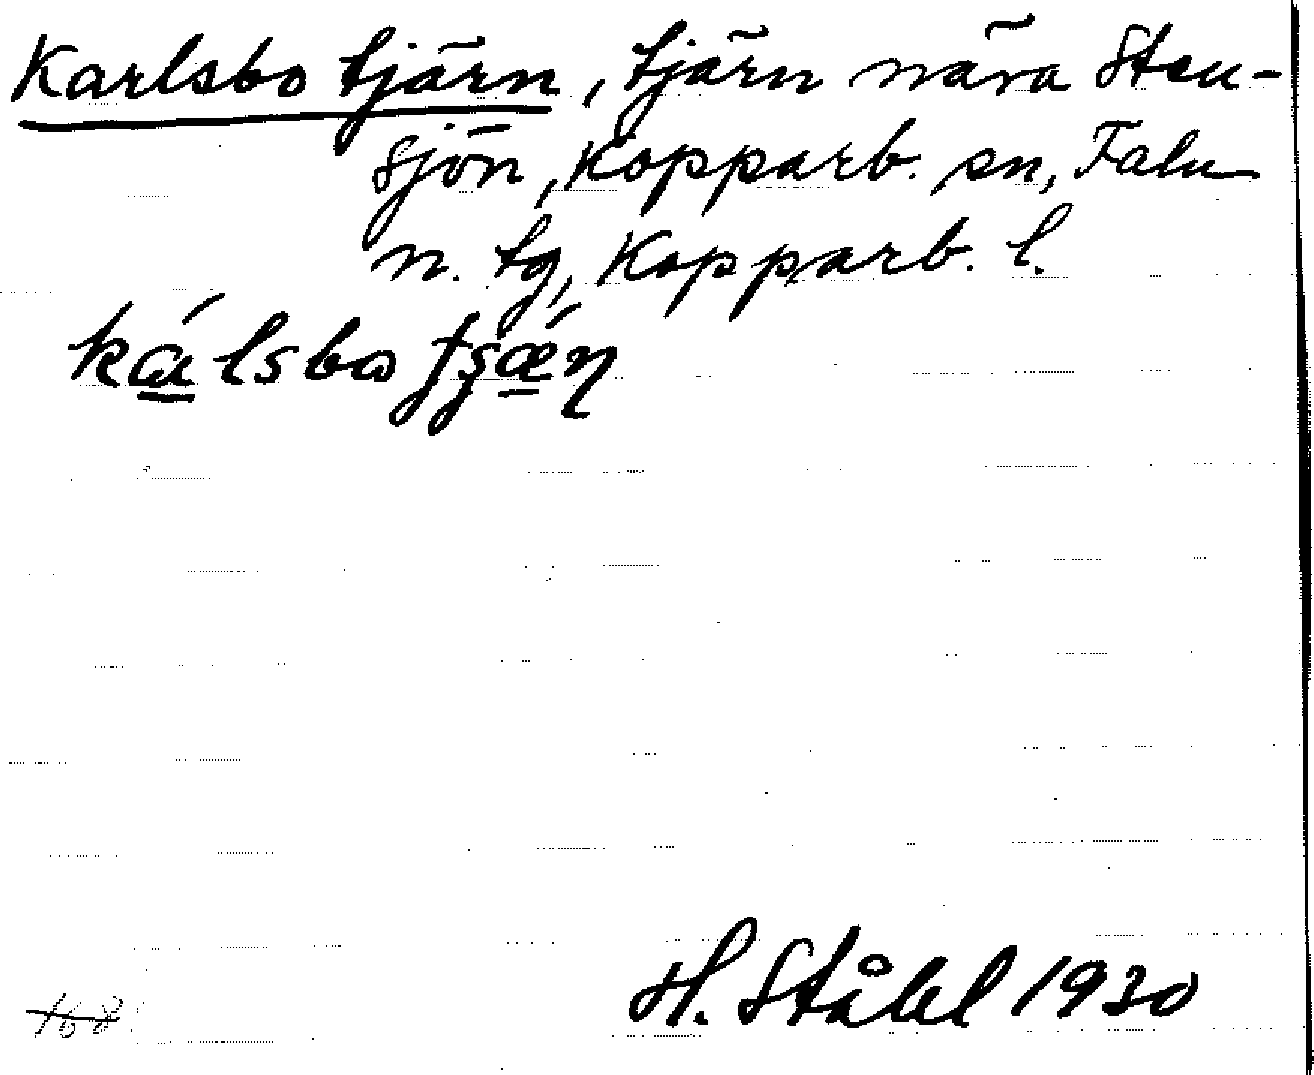 Karlsbo tjärn, tjärn nära Sten-
sjön, Kopparb. sn, Falu
n. tg, Kopparb. l.
kálsbo tʂǽn
H. Ståhl 1930
168